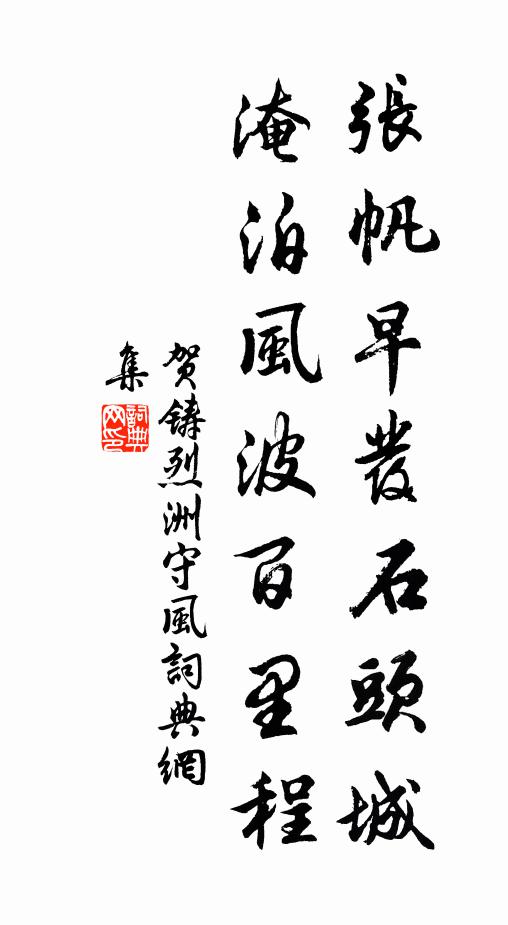 張帆早發石頭城
淹泊風波百里程
賀鑄烈洲守風詞典網
集
詞典
网印